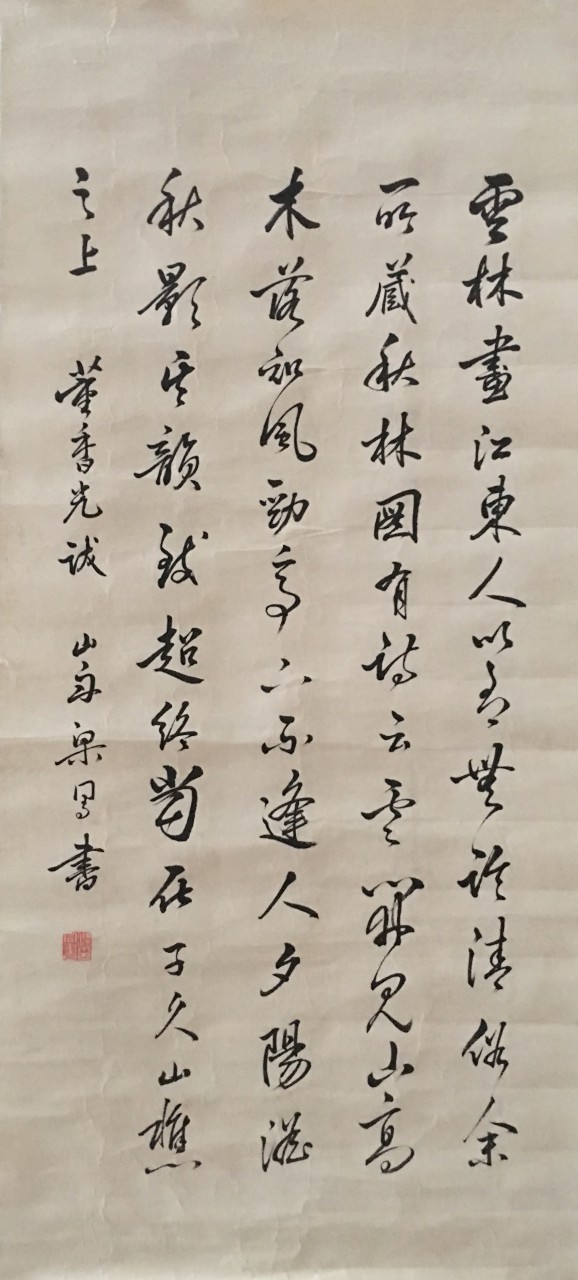 雲林畫江東人以有無論清俗余
所藏秋林圖有詩云雲開見山高
木落知風勁亭下不逢人夕陽澹
秋影其韻致超絕當在子久山樵
之上 董香光誠 山舟梁同書